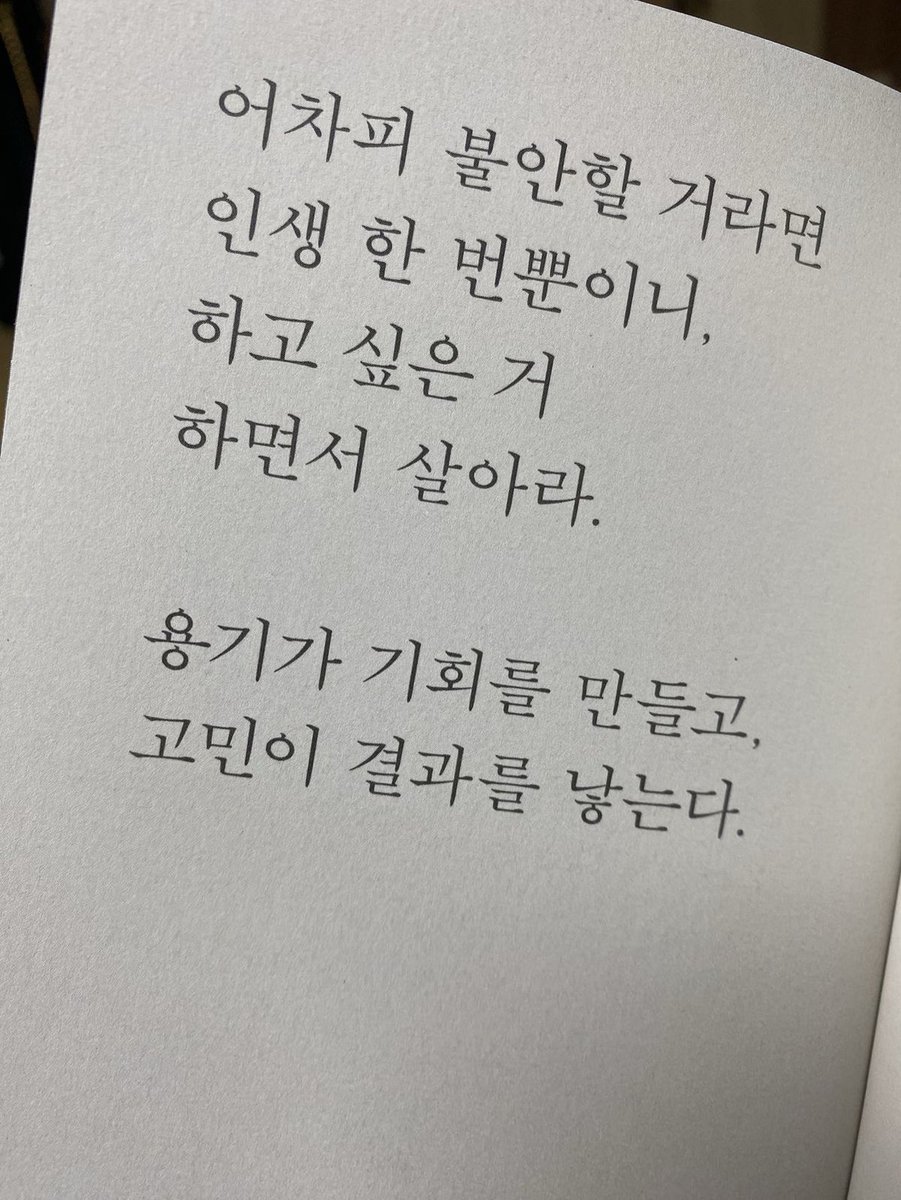 어차피 불안할 거라면
인생 한 번뿐이니,
하고 싶은 거
하면서 살아라.
용기가 기회를 만들고,
고민이 결과를 낳는다.